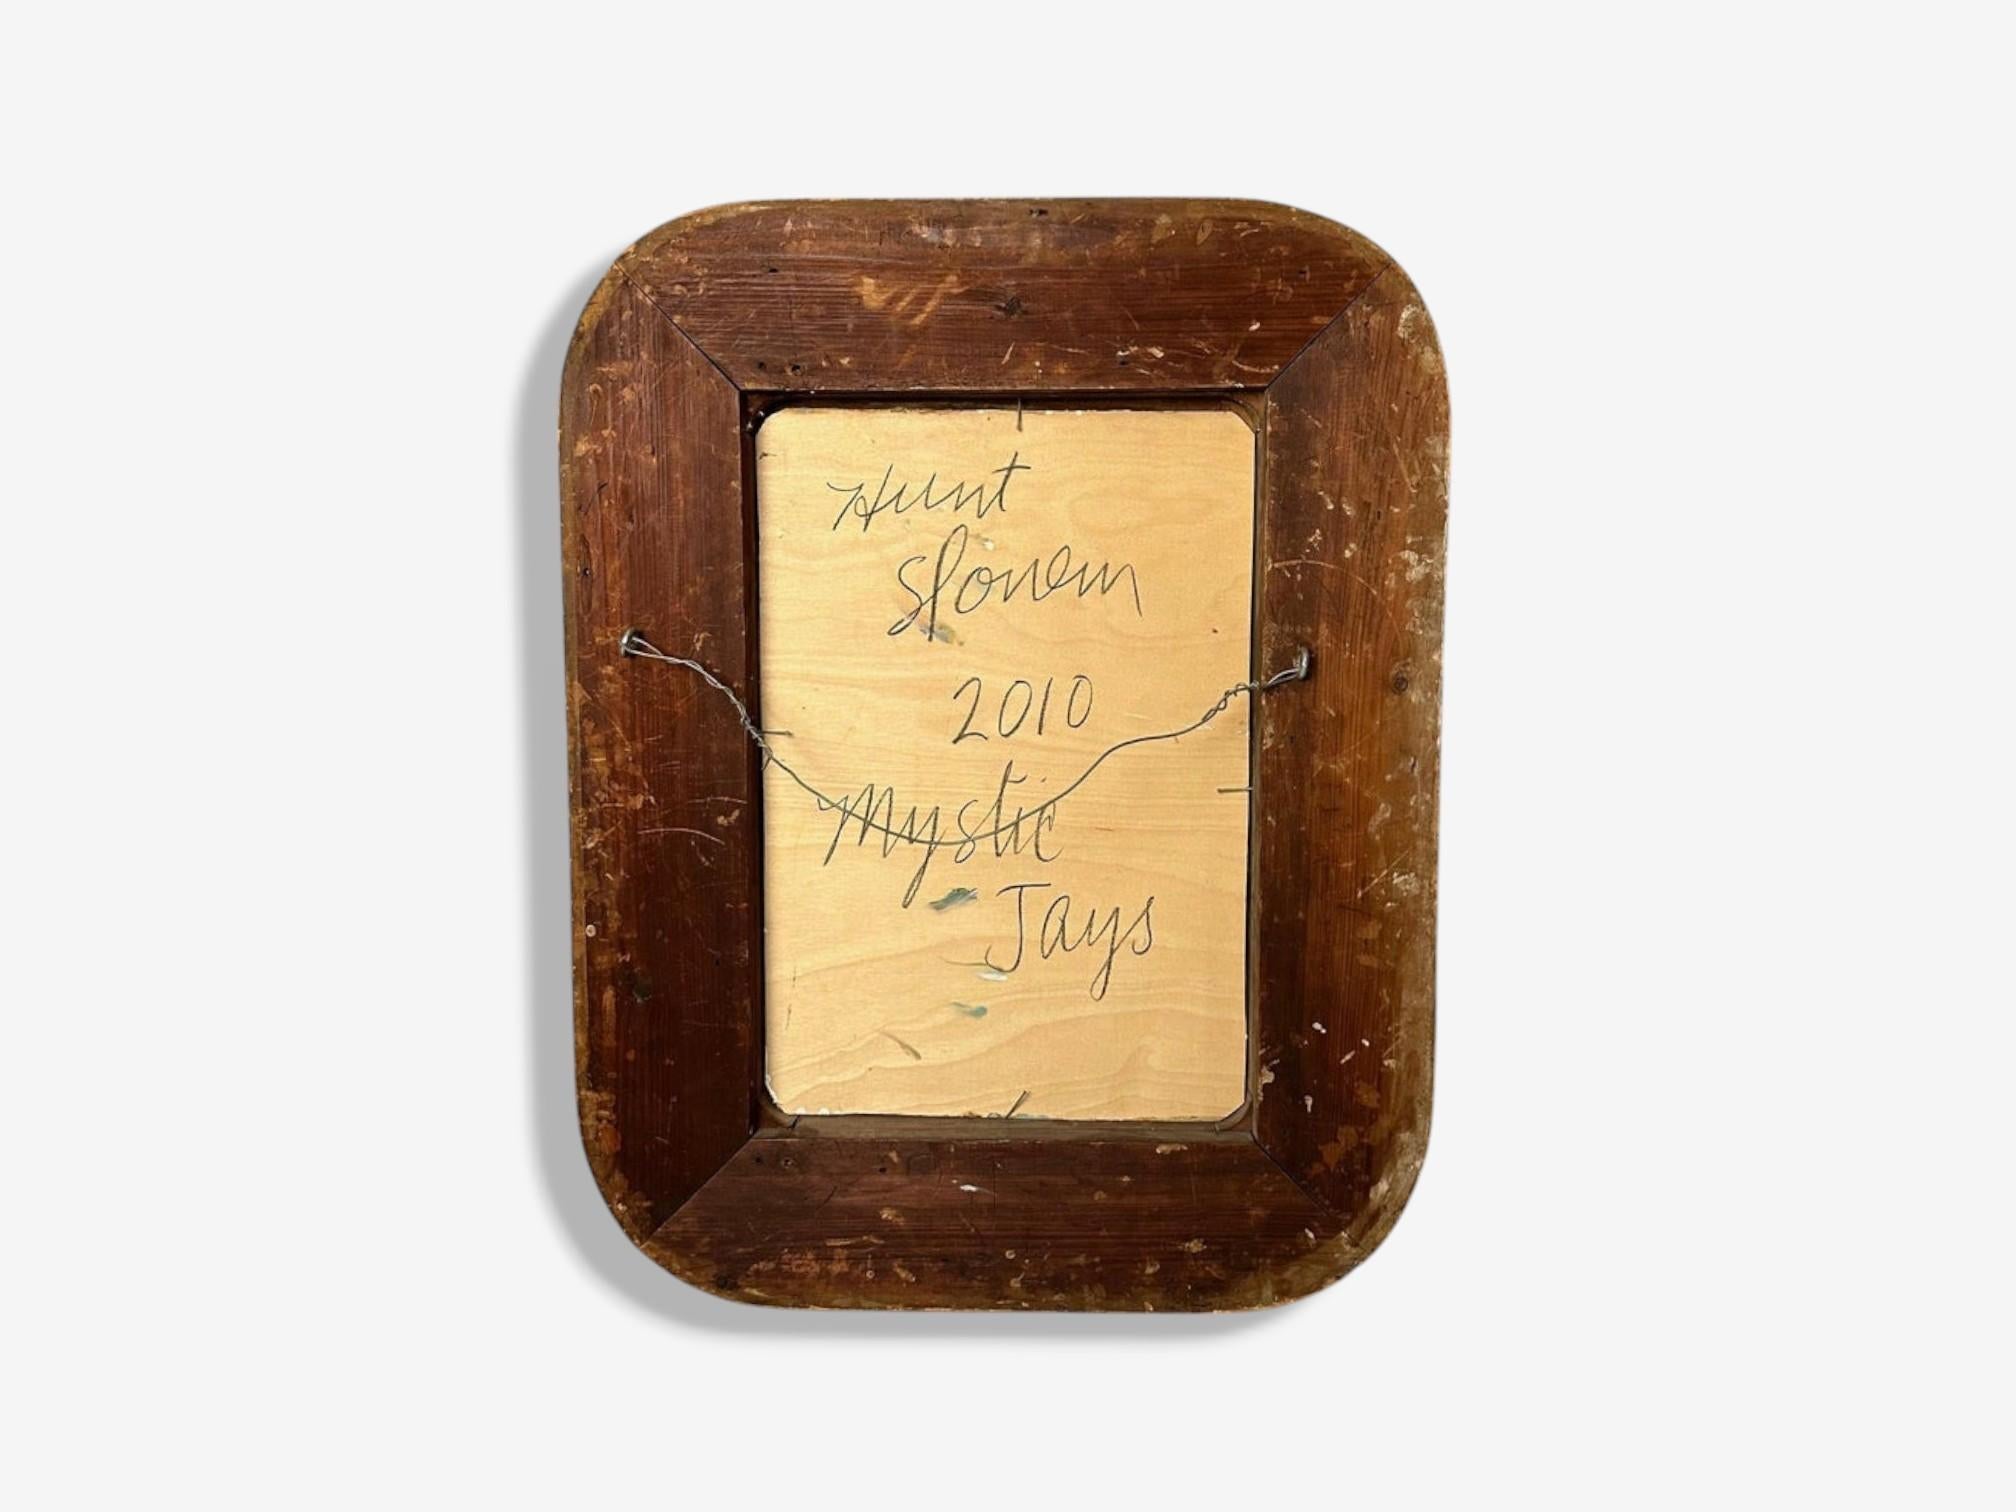 Hunt
Slonem
2010
Mystic
Jays